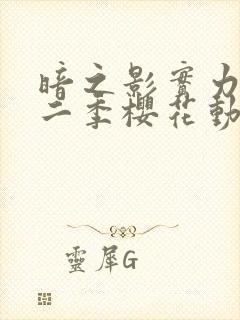 暗之影實力
二季櫻花動
靈犀G